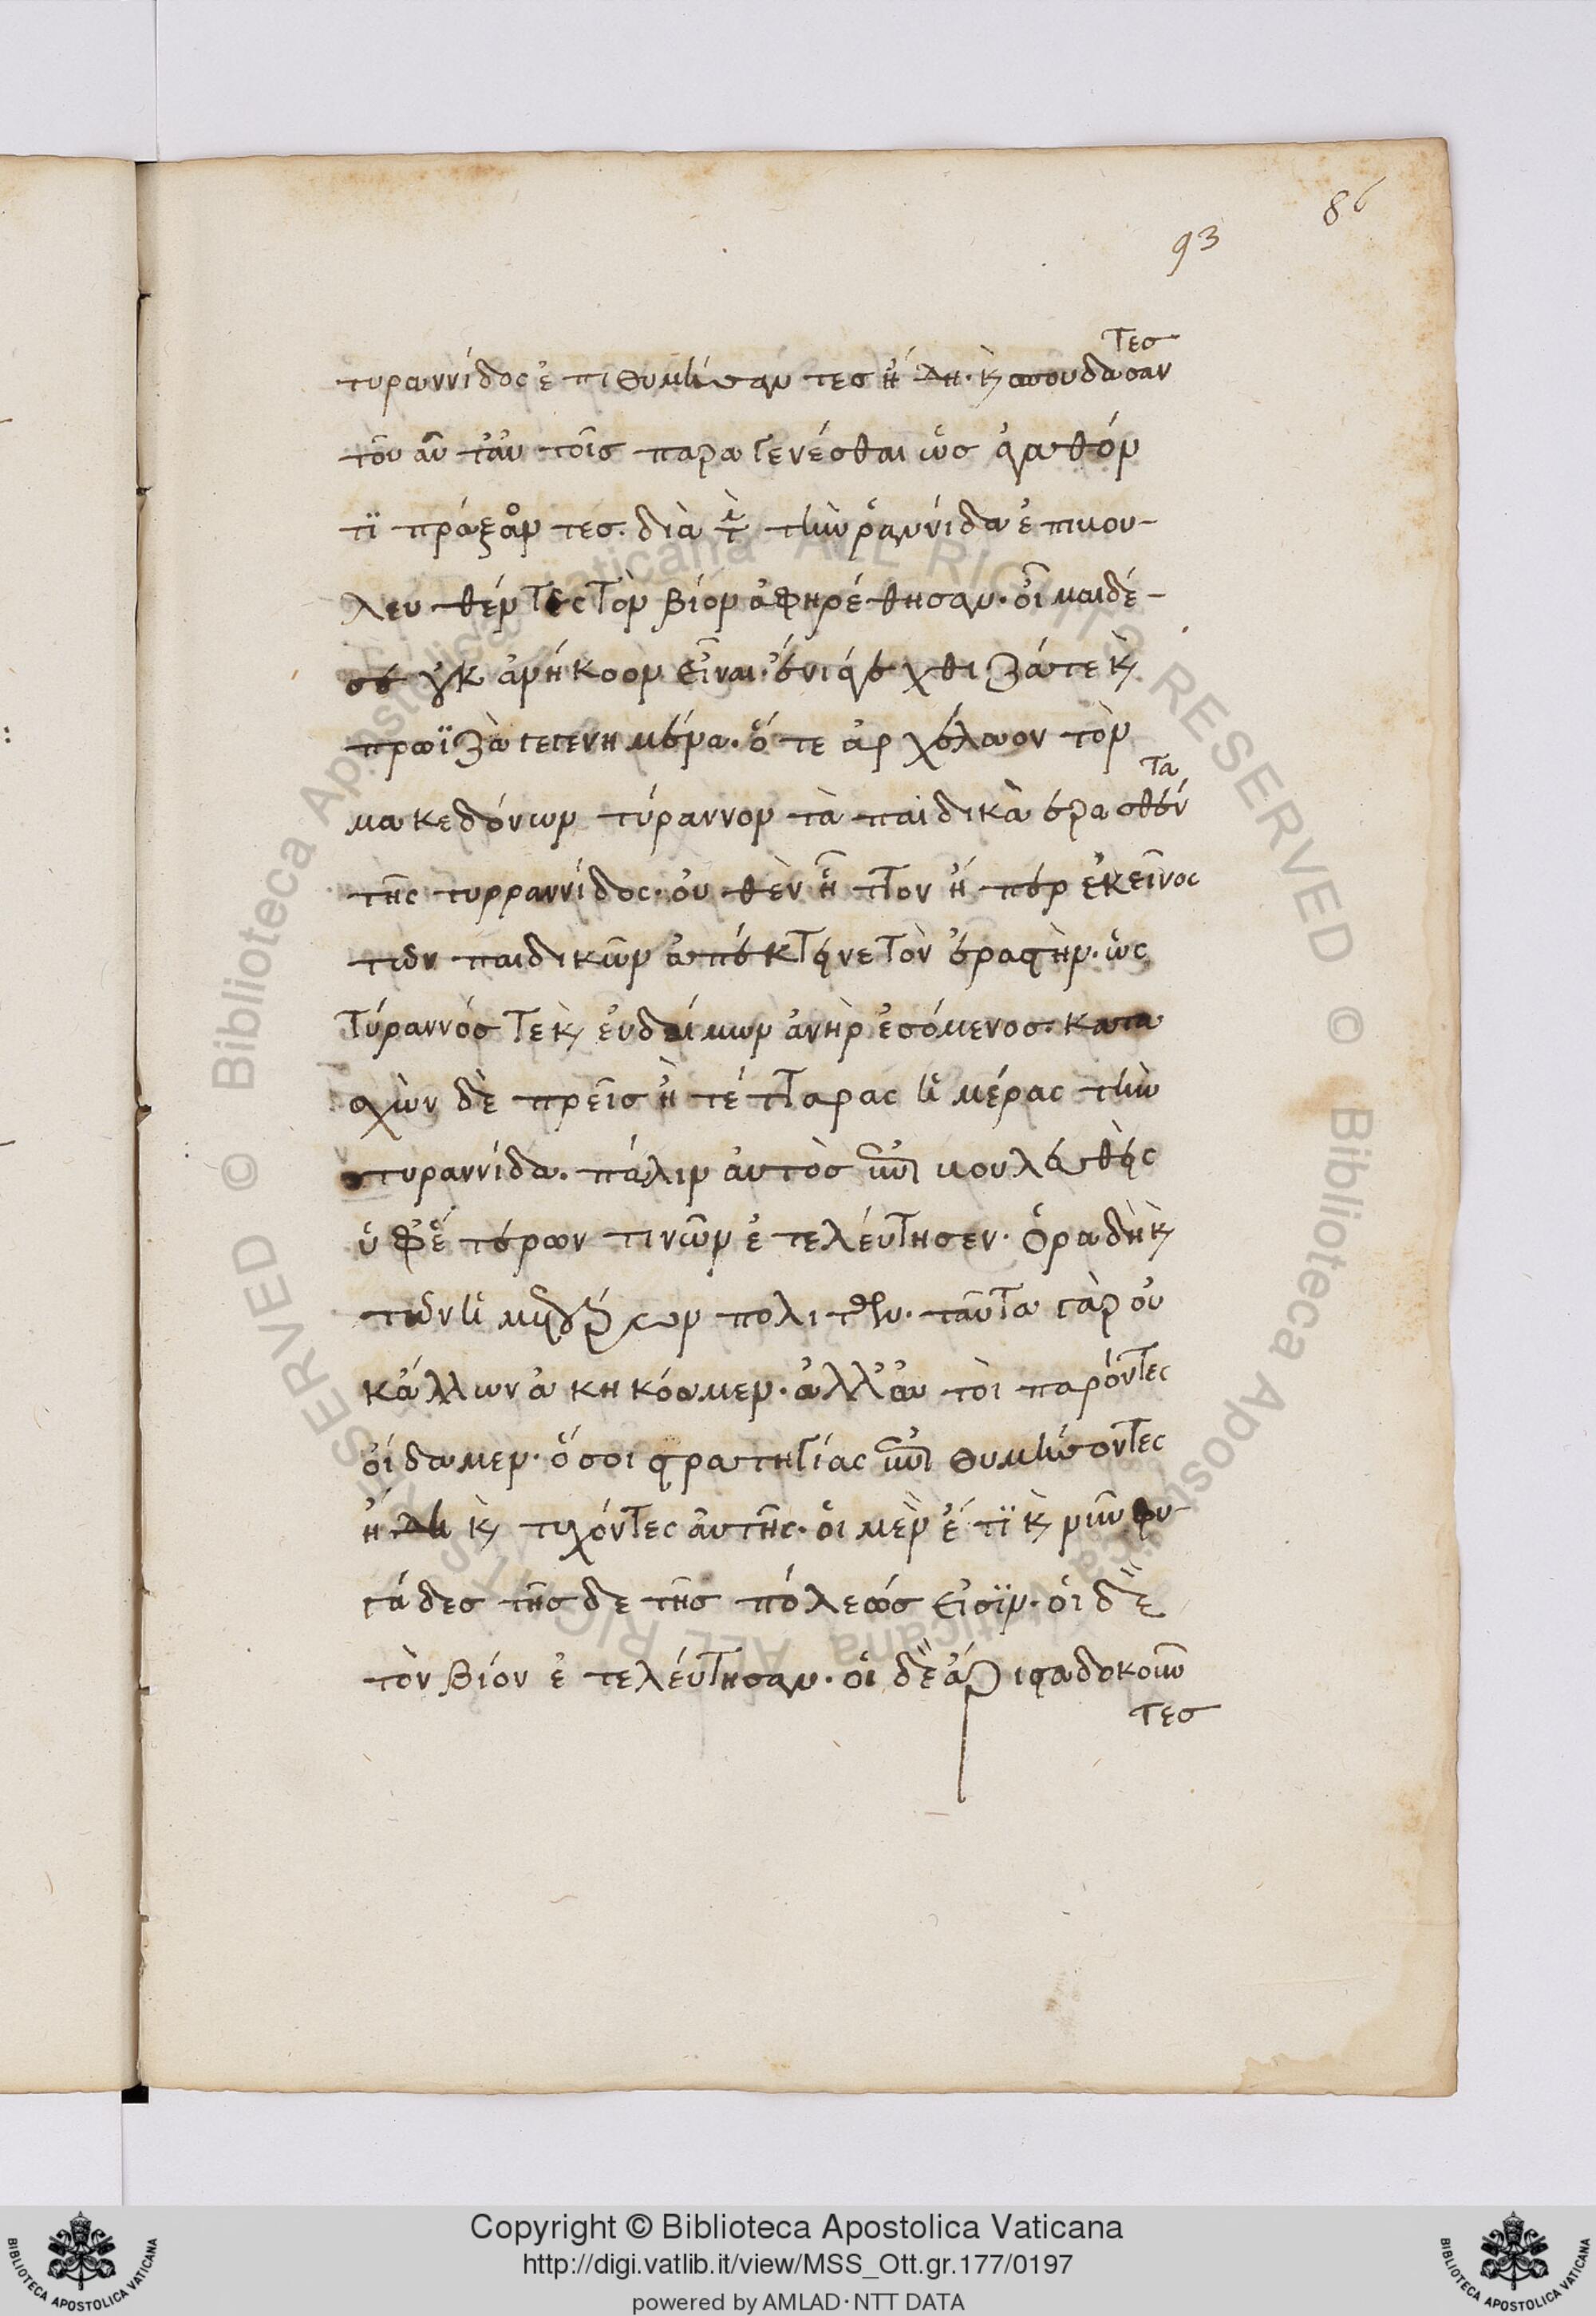 86
93
τυραννίδος ἐπιθυμήσαντες ἤδη. κ̀ σπουδάσαντες
τοῦ αὐτοῖς παραγενέσθαι ὡς ἀγαθόν
τϊ πράξαντες. διὰ τ̀ τὴν ῥαννίδα ἐπιβου-
λευθέντες τὸν βίον ἀφηρέθησαν. οἶμαι δέ
σε οὐκ ἀνήκοον εἶναι. ἔνιά γε χθιζά τε κ̀
πρωϊζὰ γεγενημένα. ὅτε ἀρχέλαον τὸν
μακεδόνων τύραννον τὰ παιδικὰ ἐρασθέντα
τῆς τυρραννίδος. οὐθὲν ἧττον ἤπερ ἐκεῖνος
τῶν παιδικῶν ἀπέκτεινε τὸν ἐραστὴν. ὡς
τύραννός τε κ̀ εὐδαίμων ἀνὴρ ἐσόμενος. κατα
σχὼν δὲ τρεῖς ἢ τέτταρας ἡμέρας τὴν
τυραννίδα. πάλιν αὐτὸς ἐπιβουλευθεὶς
ὑφ' ἑτέρων τινῶν ἐτελεύτησεν. ὅρα δὴ κ̀
τῶν ἡμετέρων πολιτῶν. ταῦτα γὰρ οὐ
κ ἄλλων ἀκηκόαμεν. ἀλλ' αὐτοὶ παρόντες
οἴδαμεν. ὅσοι στρατηγίας ἐπιθυμήσαντες
ἤδη κ̀ τυχόντες αὐτῆς. οἱ μὲν ἔτϊ κ̀ νῦν φυ
γάδες τῆσδε τῆς πόλεώς εἰσϊν. οἱ δὲ
τὸν βίον ἐτελεύτησαν. οἱ δὲ ἄριστα δοκοῦν
τες
Copyright © Biblioteca Apostolica Vaticana
http://digi.vatlib.it/view/MSS_Ott.gr.177/0197
powered by AMLAD·NTT DATA